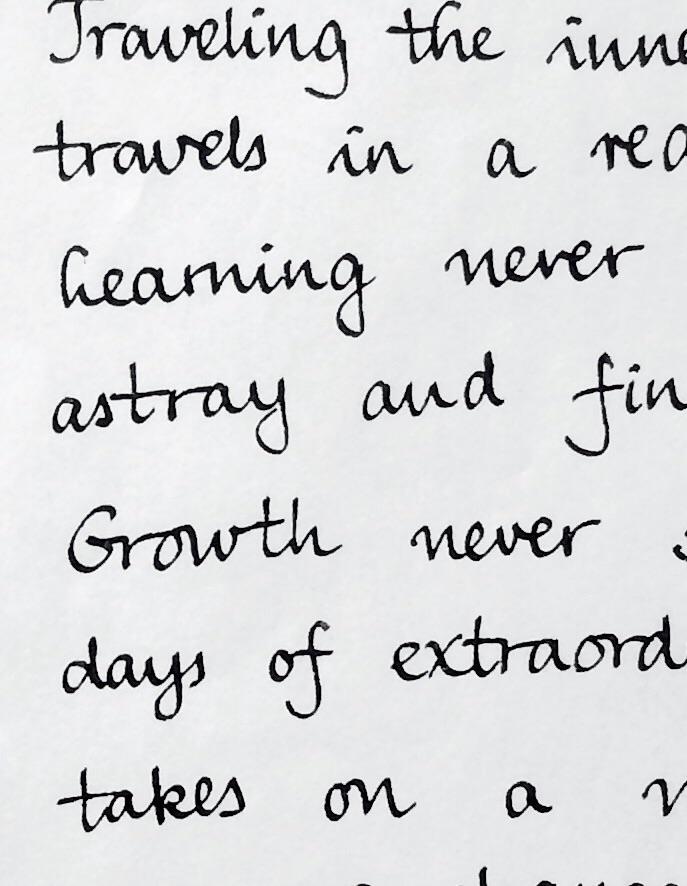 Traveling the inne
travels in a rea
learning never
astray and fin
Growth never s
days of extraord
takes on a